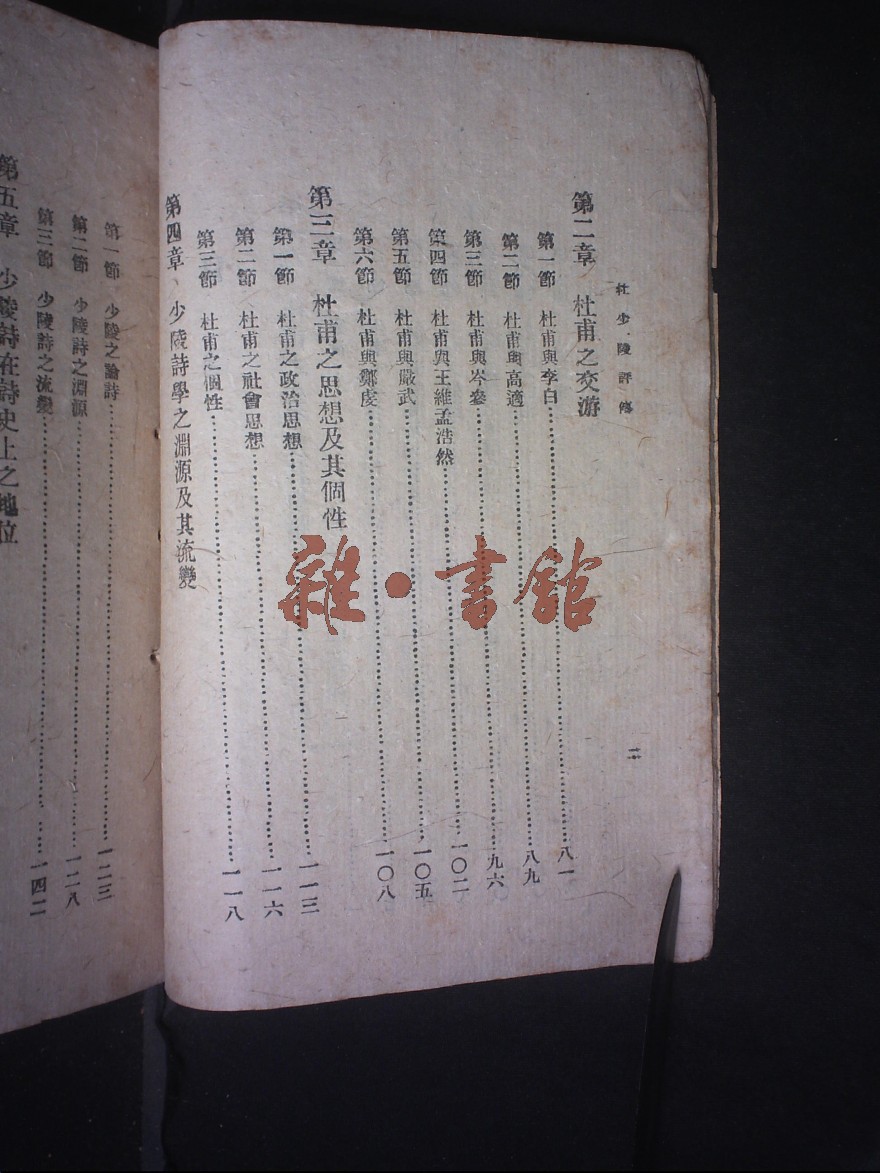 杜少陵評傳
二
第二章 杜甫之交游
第一節 杜甫與李白……八一
第二節 杜甫與高適……八九
第三節 杜甫與岑參……九六
第四節 杜甫與王維孟浩然……一〇二
第五節 杜甫與嚴武……一〇五
第六節 杜甫與鄭虔……一〇八
第三章 杜甫之思想及其個性
第一節 杜甫之政治思想……一一三
第二節 杜甫之社會思想……一一六
第三節 杜甫之個性……一一八
第四章 少陵詩學之淵源及其流變
第一節 少陵之論詩……一二三
第二節 少陵詩之淵源……一二八
第三節 少陵詩之流變……一四二
第五章 少陵詩在詩史上之地位
雜·書館